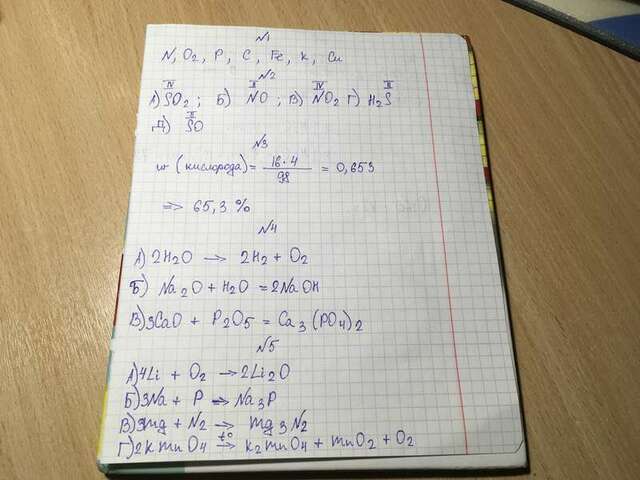 №1
N, O2, P, C, Fe, K, Cu
№2
IV II IV II
А) SO2 ; Б) NO ; В) NO2 Г) H2S
II
Д) SO
№3
w (кислорода) = 16·4 / 98 = 0,653
=> 65,3 %
№4
А) 2H2O → 2H2 + O2
Б) Na2O + H2O = 2NaOH
В) 3CaO + P2O5 = Ca3(PO4)2
№5
А) 4Li + O2 → 2Li2O
Б) 3Na + P → Na3P
В) 3mg + N2 → mg3N2
Г) 2KmnO4 t° → K2mnO4 + mnO2 + O2